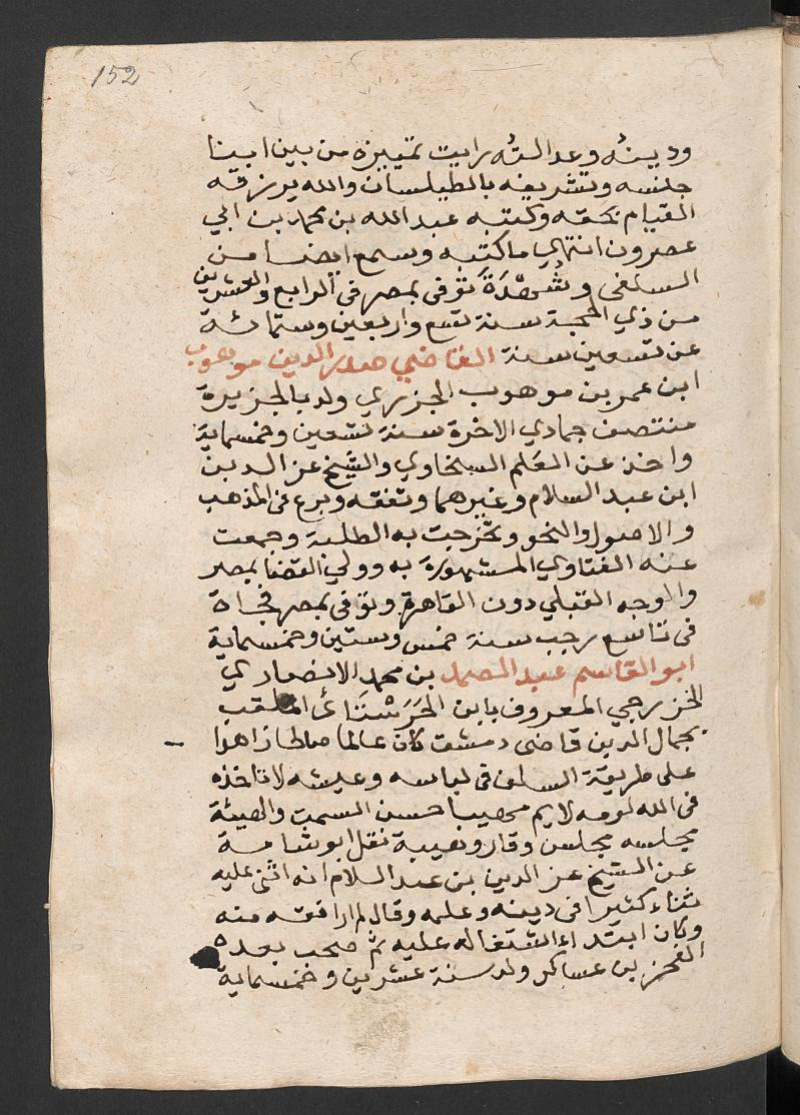 152
ودينه وعدالته رايت تمييزه من بين ابنا
جنسه وتشريفه بالطيلسان والله يرزقه
القيام بحقه وكتبه عبد الله بن محمد بن ابي
عصرون انتهي ما كتبه وسمع ايضا من
السلفي وشُهْدَةَ توفى بمصر فى الرابع والعشرين
من ذي الحجة سنة تسع واربعين وستمائة
عن تسعين سنة القاضي صدر الدين موهوب
ابن عمر بن موهوب الجزري ولد بالجزيرة
منتصف جمادي الاخرة سنة تسعين وخمسماية
واخذ عن العَلم السخاوي والشيخ عز الدين
ابن عبد السلام وغيرهما وتفقه وبرع فى المذهب
والاصول والنحو وتخرجت به الطلبة وجمعت
عنه الفتاوي المشهورة به وولي القضا بمصر
والوجه القبلي دون القاهرة وتوفى بمصر فجاة
فى تاسع رجب سنة خمس وستين وخمسماية
ابو القاسم عبد الصمد بن محمد الانصاري
الخزرجي المعروف بابن الحَرَسْتَاني الملقب
بجمال الدين قاضى دمشق كان عالما صالحا زاهدا
على طريقة السلف فى لباسه وعيشه لا تاخذه
فى الله لومه لايم مهيبا حسن السمت والهيئة
مجلسه مجلس وقار وهيبة نقل ابو شامة
عن الشيخ عز الدين بن عبد السلام انه اثنى عليه
ثناء كثيرا فى دينه وعلمه وقال لم ار افقه منه
وكان ابتداء اشتغاله عليه ثم صحب بعده
الفخر بن عساكر ولد سنة عشرين وخمسماية